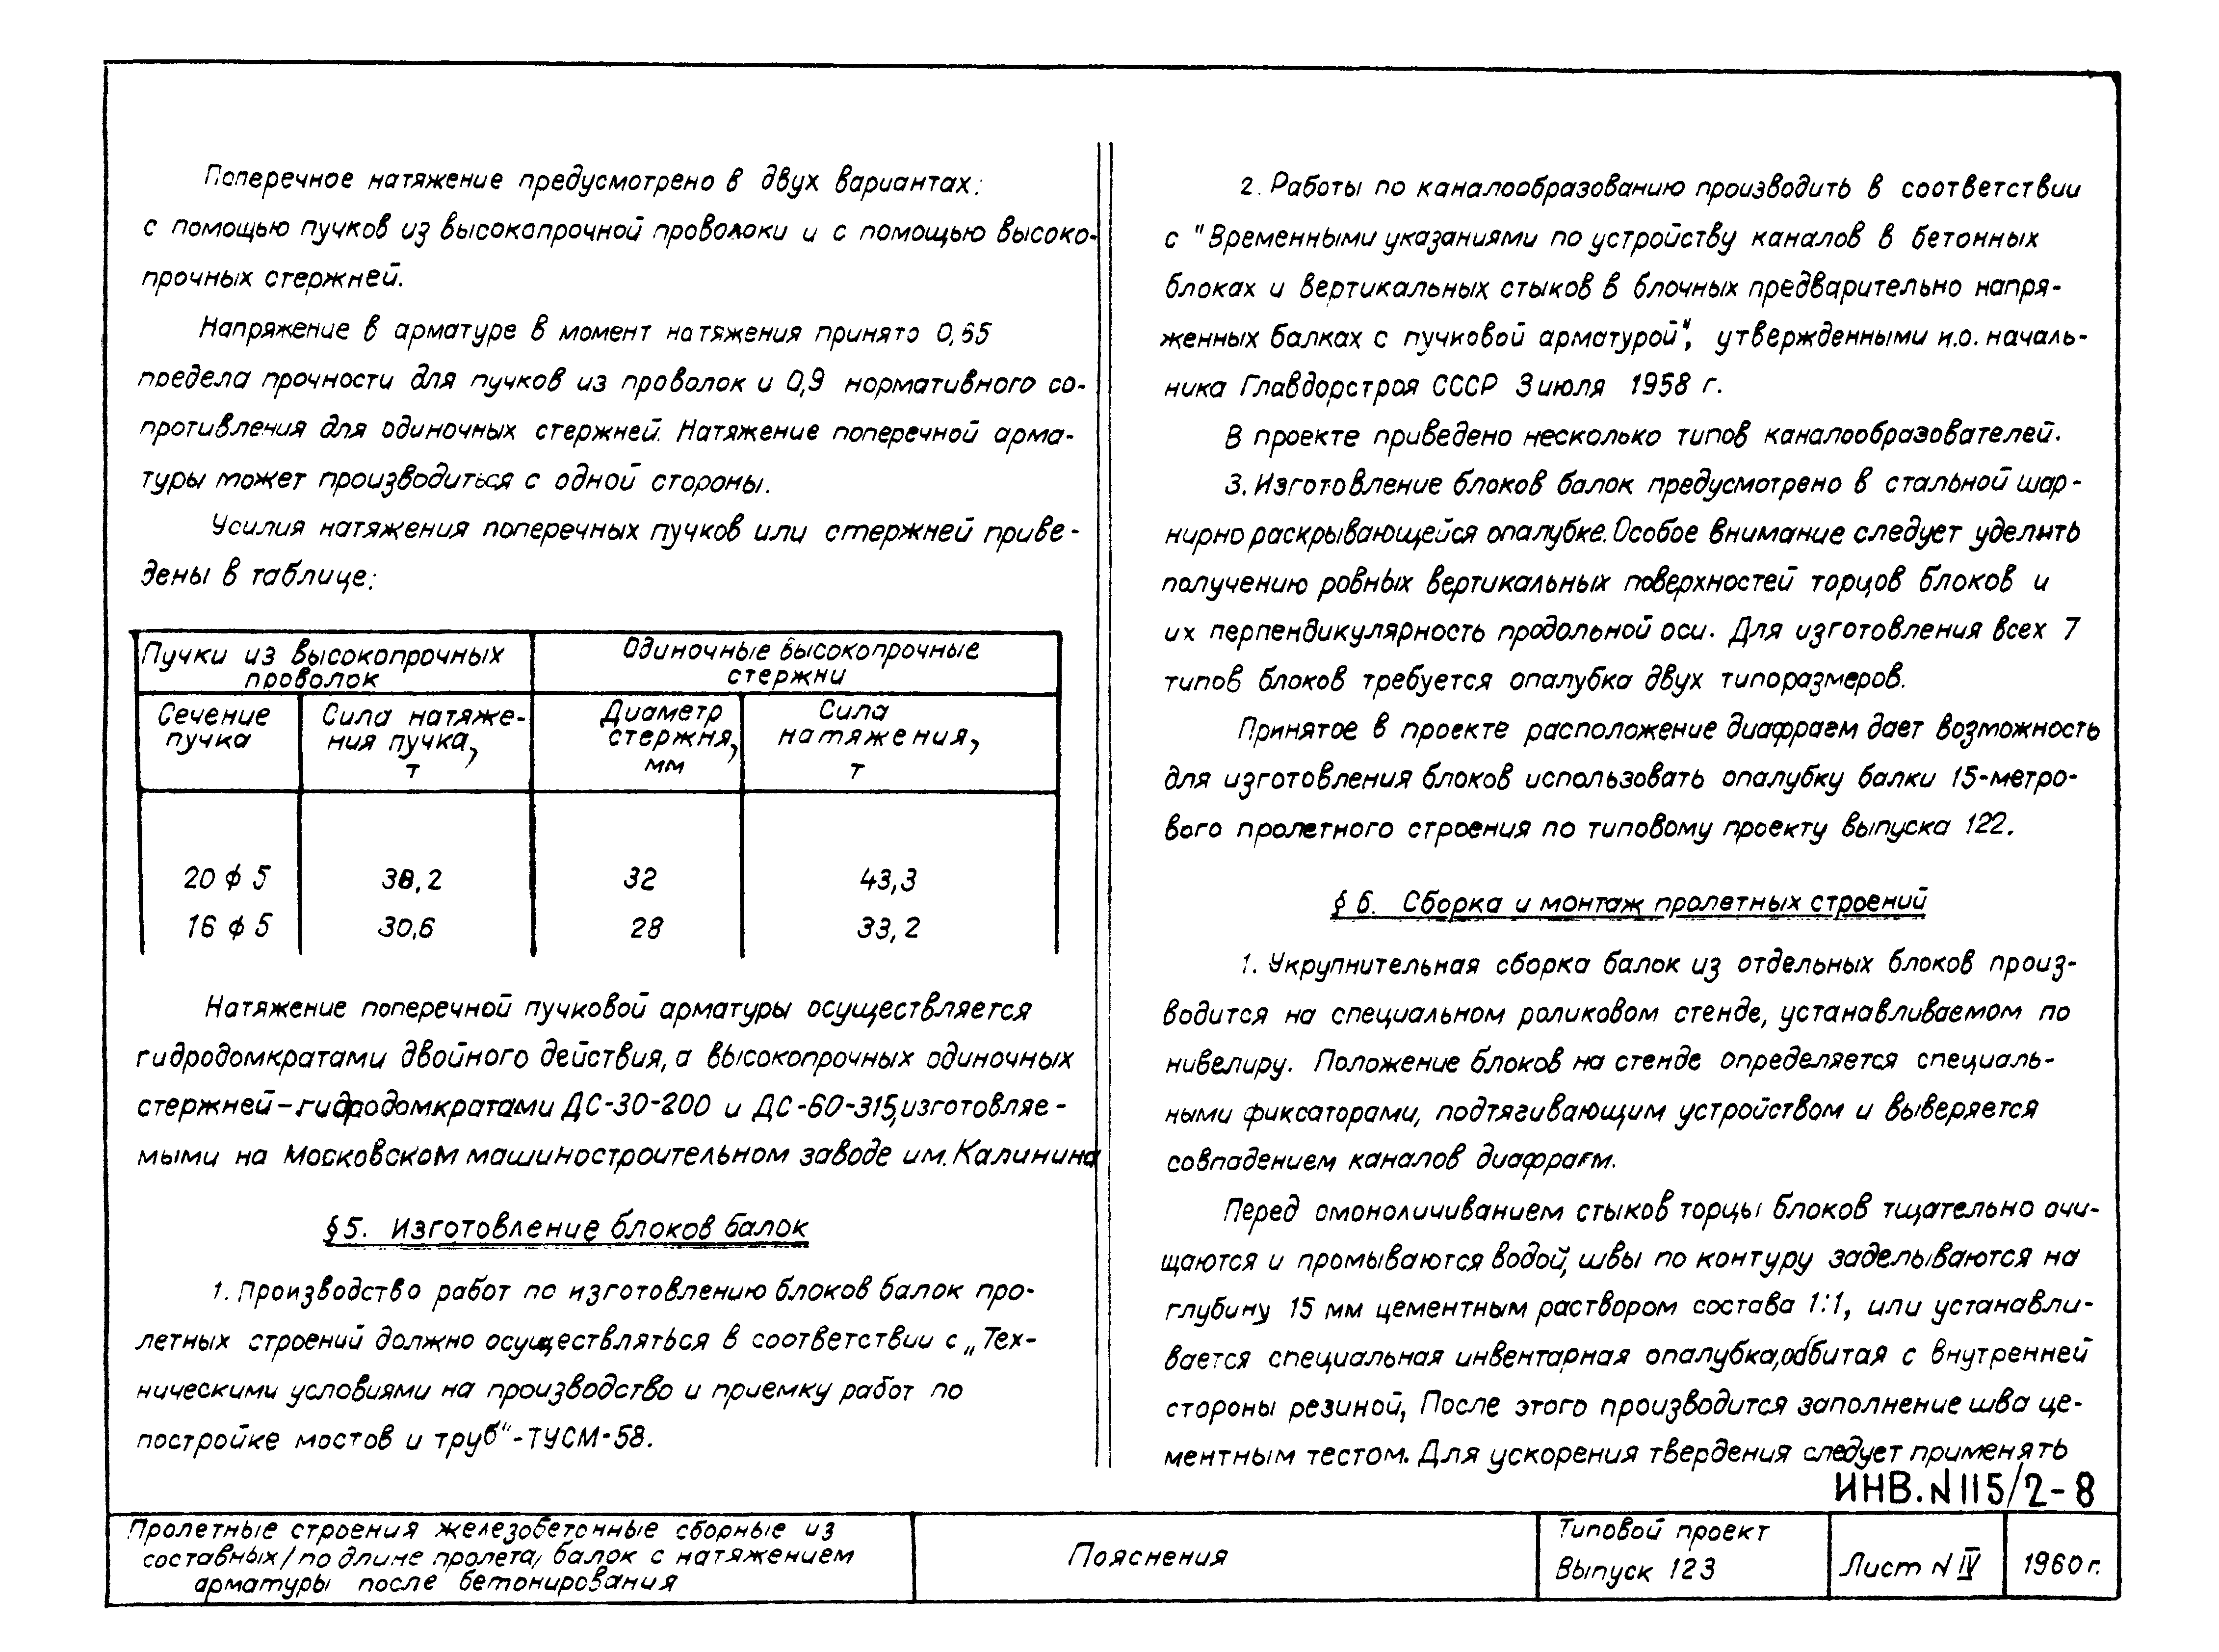 Поперечное натяжение предусмотрено в двух вариантах:
с помощью пучков из высокопрочной проволоки и с помощью высоко-
прочных стержней.
Напряжение в арматуре в момент натяжения принято 0,65
предела прочности для пучков из проволок и 0,9 нормативного со-
противления для одиночных стержней. Натяжение поперечной арма-
туры может производиться с одной стороны.
Усилия натяжения поперечных пучков или стержней приве-
дены в таблице:
Пучки из высокопрочных
проволок
Одиночные высокопрочные
стержни
Сечение
пучка
Сила натяже-
ния пучка,
т
Диаметр
стержня,
мм
Сила
натяжения,
т
20 ϕ 5 38,2 32 43,3
16 ϕ 5 30,6 28 33,2
Натяжение поперечной пучковой арматуры осуществляется
гидродомкратами двойного действия, а высокопрочных одиночных
стержней-гидродомкратами ДС-30-200 и ДС-60-315, изготовляе-
мыми на Московском машиностроительном заводе им. Калинина
§ 5. Изготовление блоков балок
1. Производство работ по изготовлению блоков балок про-
летных строений должно осуществляться в соответствии с „Тех-
ническими условиями на производство и приемку работ по
постройке мостов и труб"-ТУСМ-58.
2. Работы по каналообразованию производить в соответствии
с "Временными указаниями по устройству каналов в бетонных
блоках и вертикальных стыков в блочных предварительно напря-
женных балках с пучковой арматурой", утвержденными и.о. началь-
ника Главдорстроя СССР 3 июля 1958 г.
В проекте приведено несколько типов каналообразователей.
3. Изготовление блоков балок предусмотрено в стальной шар-
нирно раскрывающейся опалубке. Особое внимание следует уделить
получению ровных вертикальных поверхностей торцов блоков и
их перпендикулярность продольной оси. Для изготовления всех 7
типов блоков требуется опалубка двух типоразмеров.
Принятое в проекте расположение диафрагм дает возможность
для изготовления блоков использовать опалубку балки 15-метро-
вого пролетного строения по типовому проекту выпуска 122.
§ 6. Сборка и монтаж пролетных строений
1. Укрупнительная сборка балок из отдельных блоков произ-
водится на специальном роликовом стенде, устанавливаемом по
нивелиру. Положение блоков на стенде определяется специаль-
ными фиксаторами, подтягивающим устройством и выверяется
совпадением каналов диафрагм.
Перед омоноличиванием стыков торцы блоков тщательно очи-
щаются и промываются водой, швы по контуру заделываются на
глубину 15 мм цементным раствором состава 1:1, или устанавли-
вается специальная инвентарная опалубка, оббитая с внутренней
стороны резиной, После этого производится заполнение шва це-
ментным тестом. Для ускорения твердения следует применять
ИНВ. N 115/2-8
Пролетные строения железобетонные сборные из
составных /по длине пролета/ балок с натяжением
арматуры после бетонирования
Пояснения
Типовой проект
Выпуск 123
Лист N IV
1960 г.